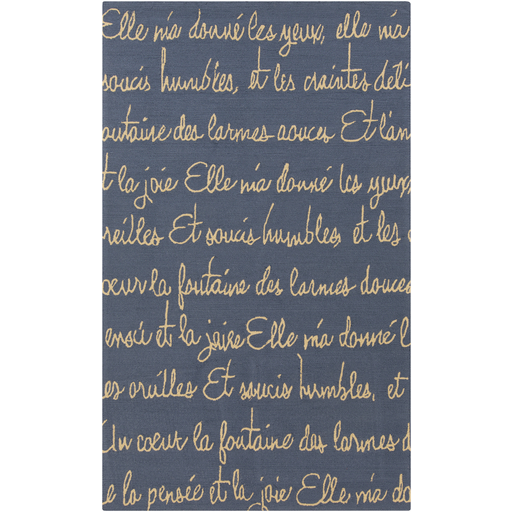 Elle m'a donné les yeux, elle m'a
soucis humbles, et les craintes deli
ontaine des larmes douces Et l'am
t la joie Elle m'a donné les yeux,
reilles Et soucis humbles et les c
oeur la fontaine des larmes douces
ensée et la joise Elle m'a donné l
es oreilles Et soucis humbles, et
Un coeur la fontaine des larmes d
e la pensée et la joie Elle m'a do